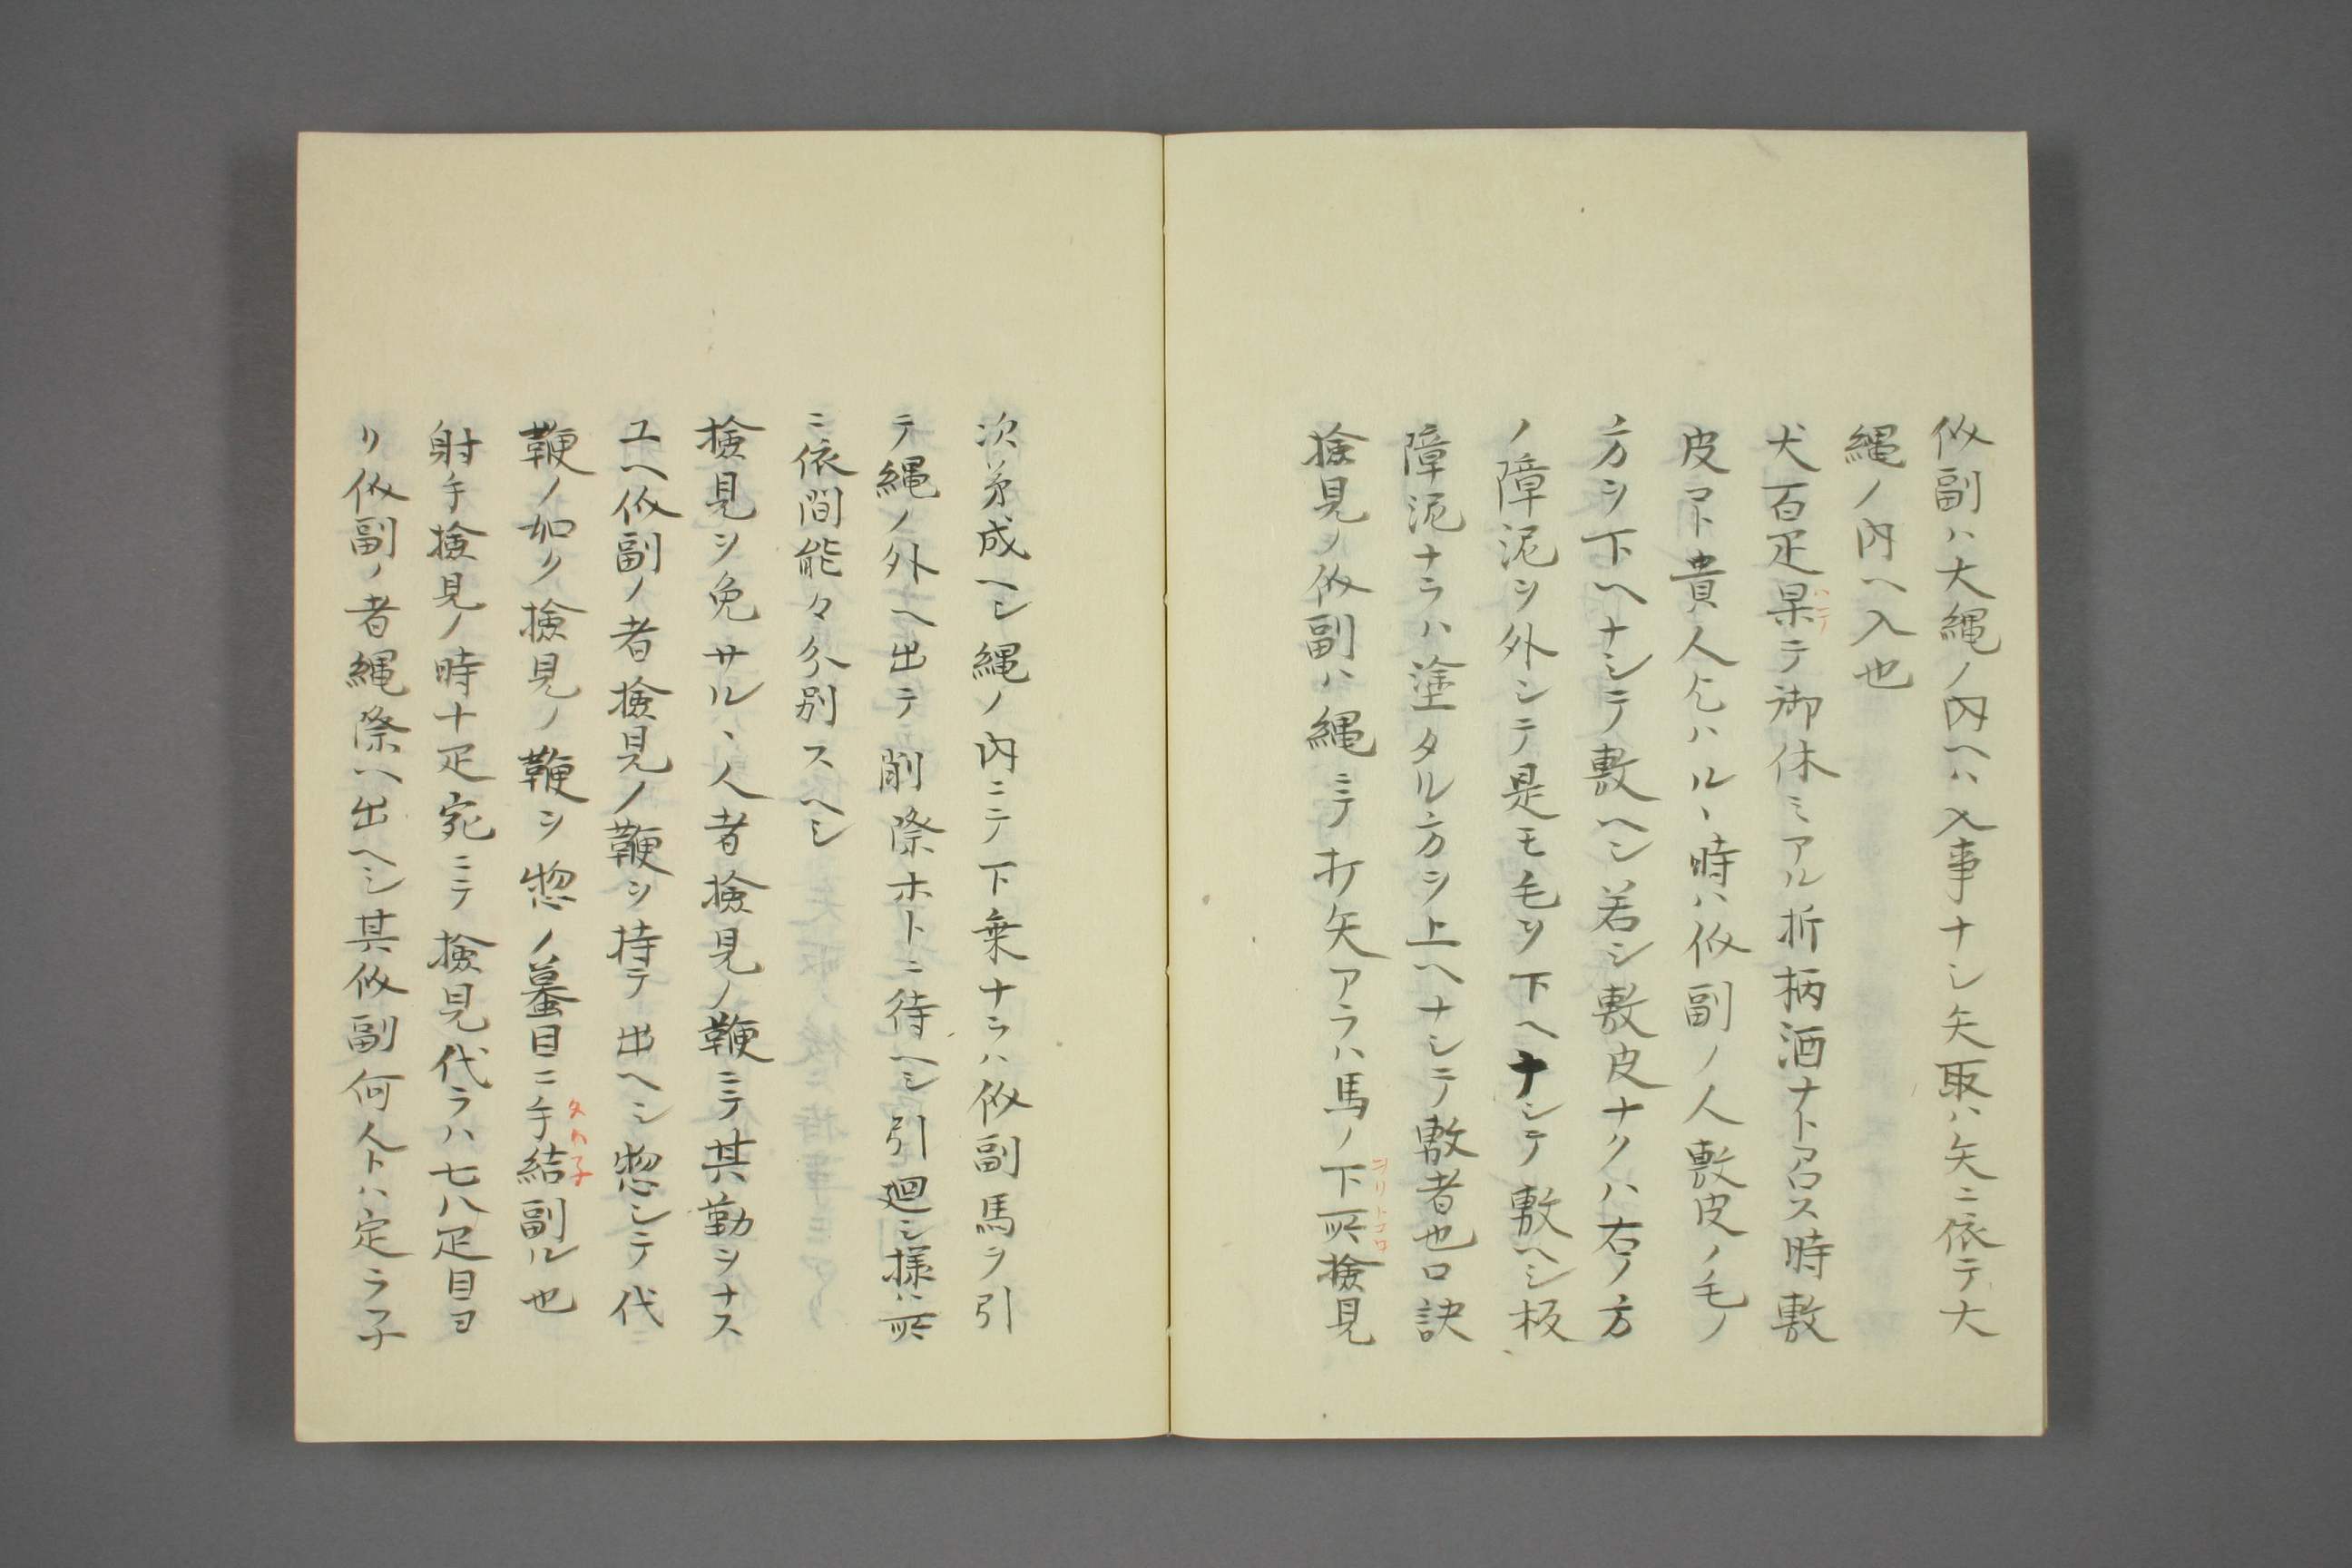 似副ハ大縄ノ内ヘハ入事ナシ矢取ハ矢ニ依テ大
縄ノ内ヘ入也
犬百疋果テ御休ミアル折柄酒ナト召ス時敷
皮アト貴人乞ハルヽ時ハ似副ノ人敷皮ノ毛ノ
方ヲ下ヘナシテ敷ヘシ若シ敷皮ナクハ右ノ方
ノ障泥ヲ外シテ是モ毛ヲ下ヘナシテ敷ヘシ板
障泥ナラハ塗タル方ヲ上ヘナシテ敷者也口訣
撿見ノ似副ハ縄ニテ打矢アラハ馬ノ下所撿見
ヲリトコロ
次第成ヘシ縄ノ内ニテ下乗ナラハ似副馬ヲ引
テ縄ノ外ヘ出テ削際ホトニ待ヘシ引廻シ様ハ所
ニ依間能々分別スヘシ
撿見ヲ免サルヽ人者撿見ノ鞭ニテ其勤ヲナス
ユヘ似副ノ者撿見ノ鞭ヲ持テ出ヘシ惣シテ代
鞭ノ如ク撿見ノ鞭ヲ惣ノ蟇目ニ手結副ル也
タカ子
射手撿見ノ時十疋宛ニテ撿見代ラハ七八疋目ヨ
リ似副ノ者縄際ヘ出ヘシ其似副何人トハ定ラ子